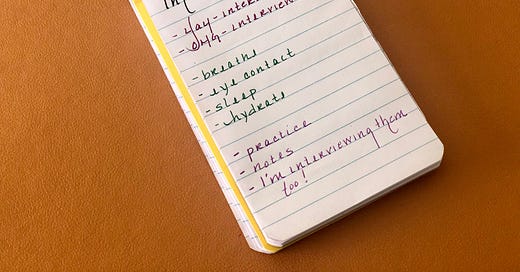 - yay-inter
- omg-interview
- breathe
- eye contact
- sleep
- hydrate
- practice
- notes
- I'm interviewing them
too!